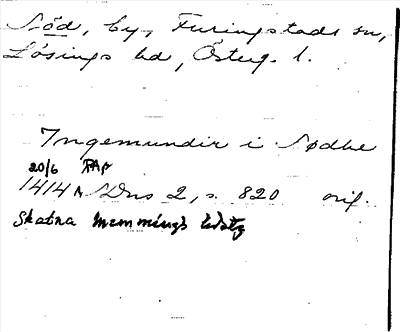 Söd, by, Furingstads sn,
Lösings hd, Österg. l.
Ingemundir i Sødhe
20/6 RAp
1414 SDns 2, s. 820 orig.
Skatna Memmings hdstg